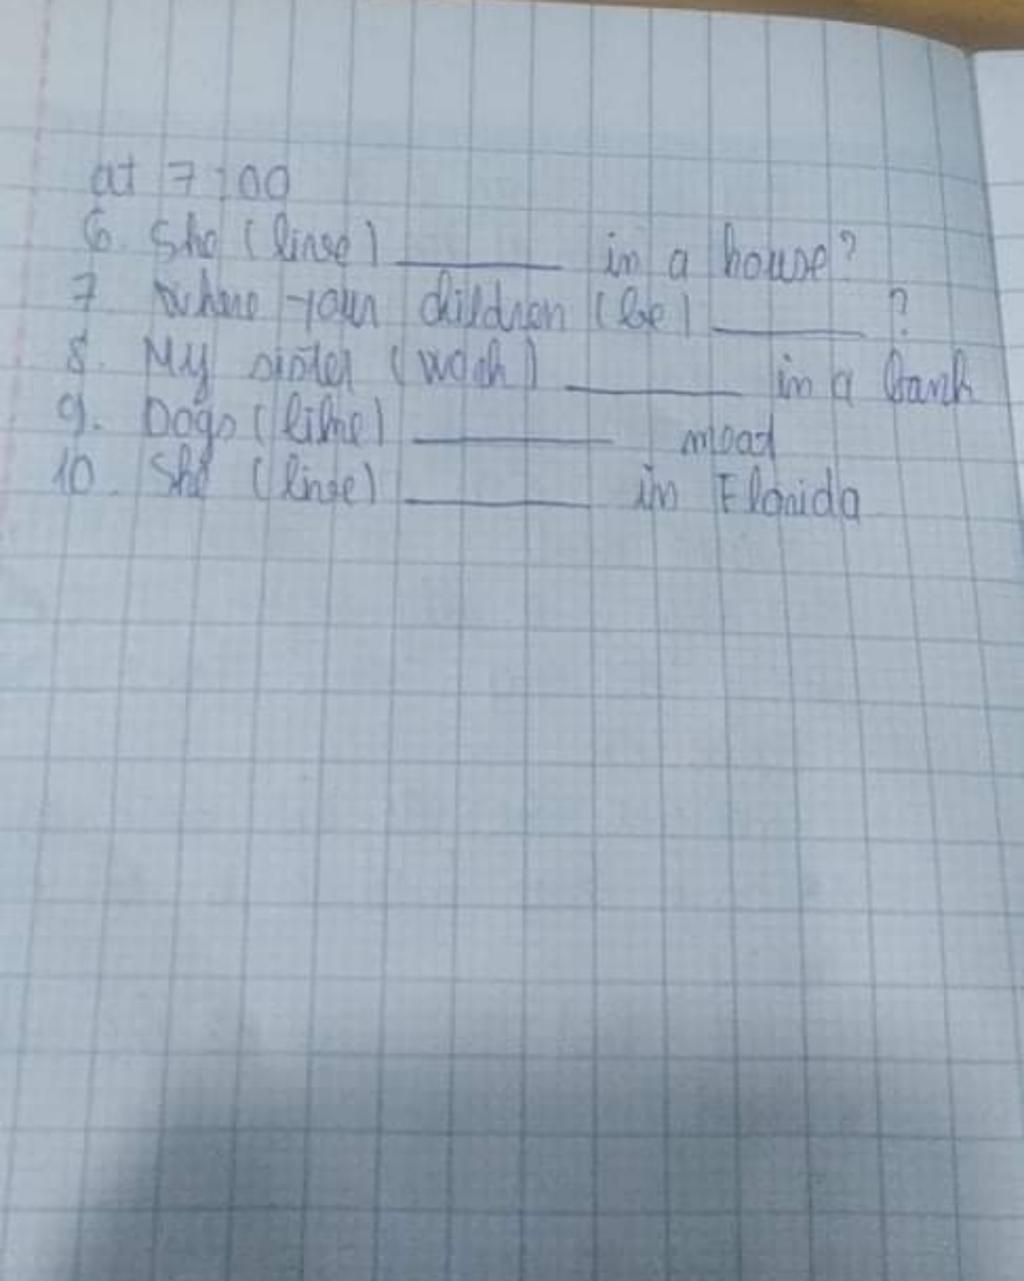 at 7:00
6. She (live) ________ in a house?
7. Where your children (be) ________ ?
8. My sister (work) ________ in a bank
9. Dogs (like) ________ meat
10. She (live) ________ in Florida